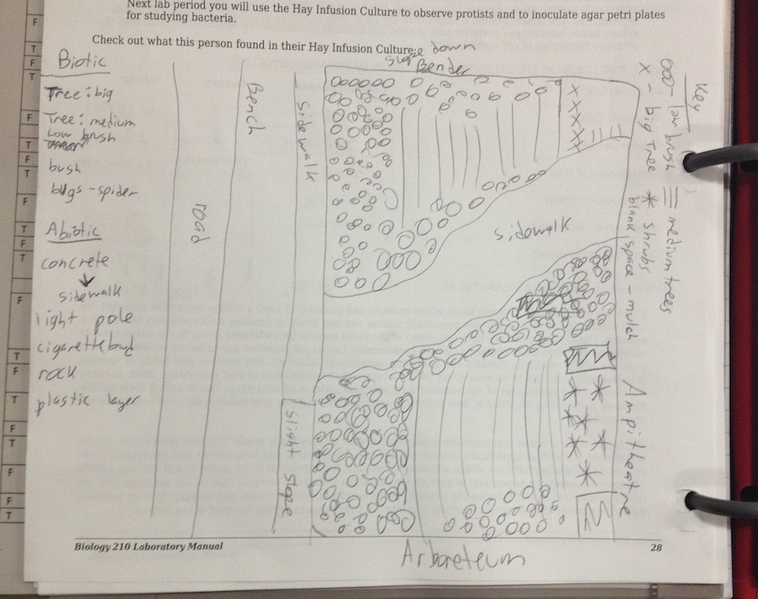 Next lab period you will use the Hay Infusion Culture to observe protists and to inoculate agar petri plates
for studying bacteria.
Check out what this person found in their Hay Infusion Culture:
slope down
Bender
Biotic
Tree: big
Tree: medium
Low brush
bush
bugs - spider
Abiotic
concrete
sidewalk
light pole
cigarette bud
rock
plastic layer
road
Bench
sidewalk
slight slope
sidewalk
Key
ooo - low brush
≡ medium trees
x - big Tree
* shrubs
blank space - mulch
Ampitheatre
Arboreteum
Biology 210 Laboratory Manual
28
F
T
F
T
F
T
F
T
F
T
F
T
F
T
F
T
F
T
F
F
T